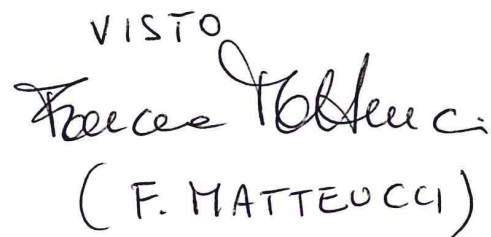 VISTO
Francesca Matteucci
(F. MATTEUCCI)